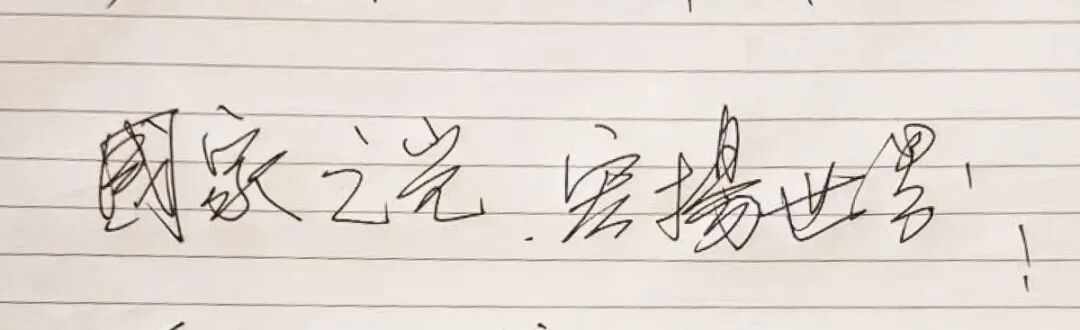 國家之光.宏揚世界!